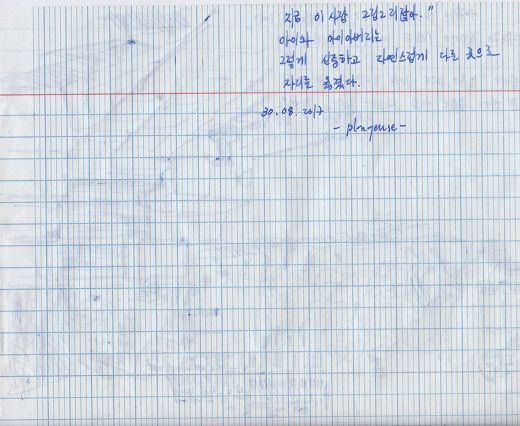 지금 이 사람 그림그리잖아."
아이와 아이아버지는
그렇게 신중하고 자연스럽게 다른 곳으로
자리를 옮겼다.
30.08.2017